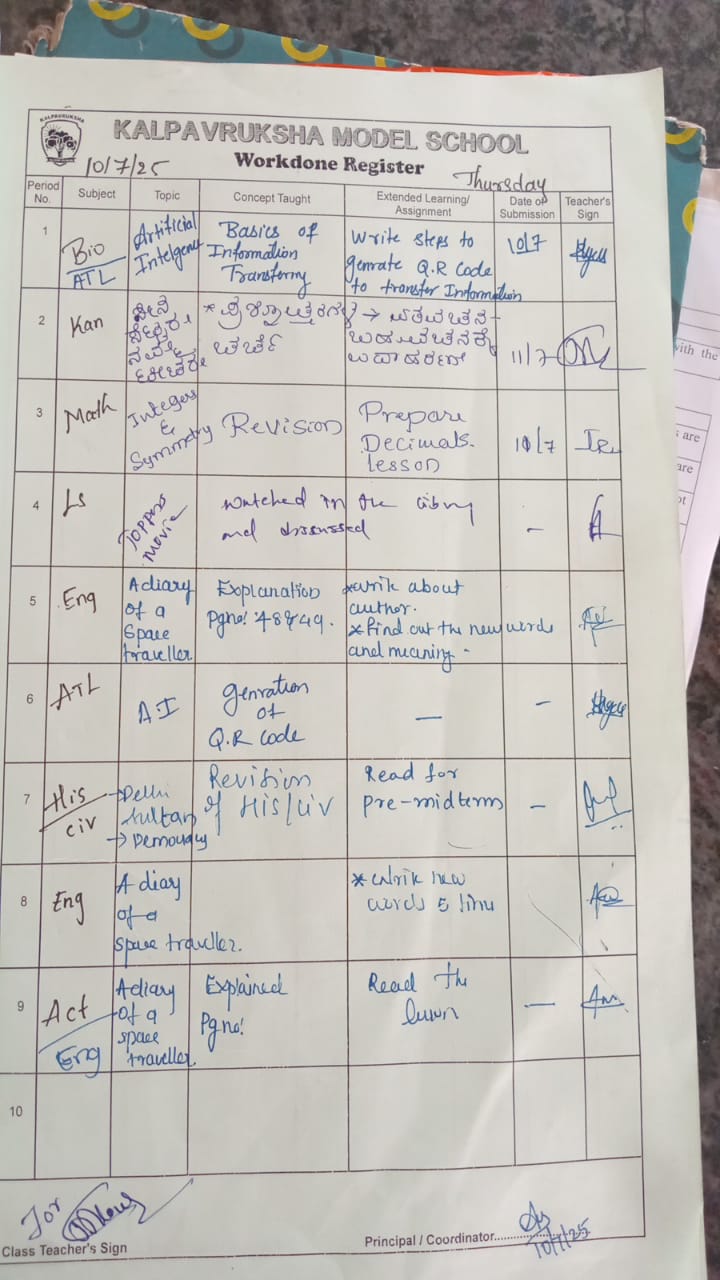 KALPAVRUKSHA
KALPAVRUKSHA MODEL SCHOOL
10/7/25 Workdone Register Thursday
Period No. Subject Topic Concept Taught Extended Learning/ Assignment Date of Submission Teacher's Sign
1 Bio/ATL Artificial Intelgence Basics of Information Transfering Write steps to genrate Q.R Code to transfer Information 10/7
2 Kan ನೀನೆ ನವೀ * ಪ್ರಶ್ನೋತ್ತರಗಳ ಚರ್ಚೆ → ಏಕವಚನ- ಬಹುವಚನಕ್ಕೆ ಉದಾಹರಣೆ 11/7
3 Math Integers & Symmetry Revision Prepare Decimals lesson 10/7
4 LS Toppers movie watched in the and discussed -
5 Eng A diary of a Space traveller Explanation Pgno: 48&49. *write about author. * Find out the new words and meaning -
6 ATL A.I genration of Q.R code — -
7 His/civ →Delhi Sultan → Revision of His/Civ Read for pre-midterm -
8 Eng A diary of a space traveller. * Write new words 5 line
9 Act/Eng A diary of a space traveller. Explained Pgno! Read the —
10
For
Class Teacher's Sign
Principal / Coordinator.............. 10/7/25
with the
s are
are
ot